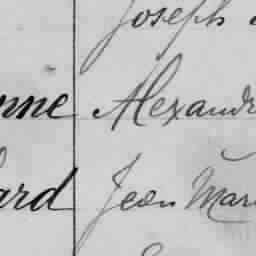 Joseph
nne Alexandr
ard Jean Mar